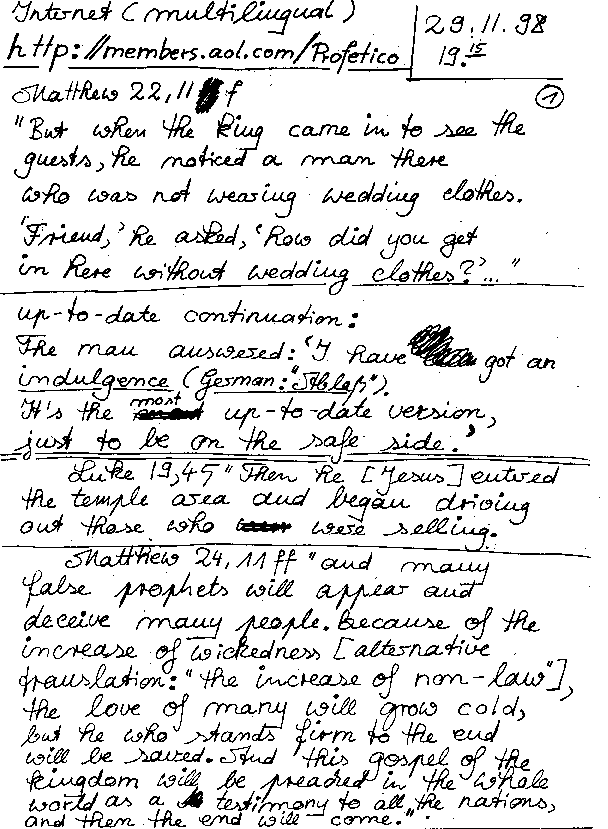 Internet (multilingual)
http://members.aol.com/Profetico
29.11.98
19.15
Matthew 22,11 f
1
"But when the king came in to see the
guests, he noticed a man there
who was not wearing wedding clothes.
'Friend,' he asked, 'how did you get
in here without wedding clothes?'..."
up-to-date continuation:
The man answered: 'I have got an
indulgence (German: "Ablaß").
It's the most up-to-date version,
just to be on the safe side.'
Luke 19,45 "Then he [Jesus] entered
the temple area and began driving
out those who were selling.
Matthew 24,11 ff "and many
false prophets will appear and
deceive many people. Because of the
increase of wickedness [alternative
translation: "the increase of non-law"],
the love of many will grow cold,
but he who stands firm to the end
will be saved. And this gospel of the
kingdom will be preached in the whole
world as a testimony to all the nations,
and then the end will come."